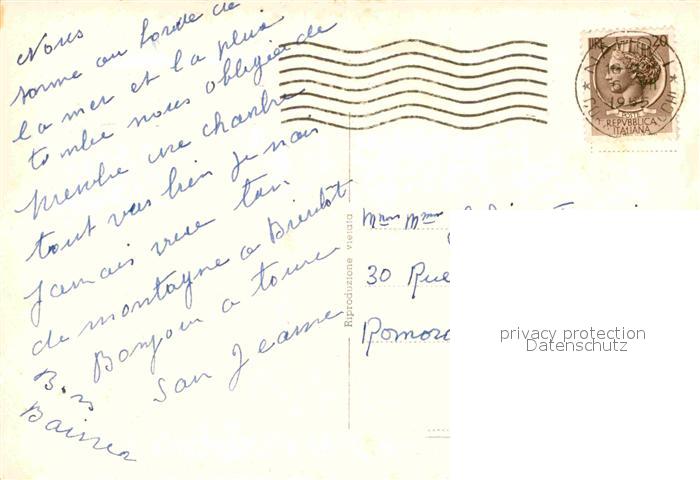 Nous
somme au borde de
la mer et la pluis
tombe nous obligée de
prendre une chanbre
tout vas bien je nais
jamais vue tan
de montagne a Bientôt
Bonjour a tous
San Jeanne
Bons
Baisers
LIRE 20
1952
POSTE
REPVBBLICA
ITALIANA
Riproduzione vietata
Mme
30 Rue
Romora
privacy protection
Datenschutz